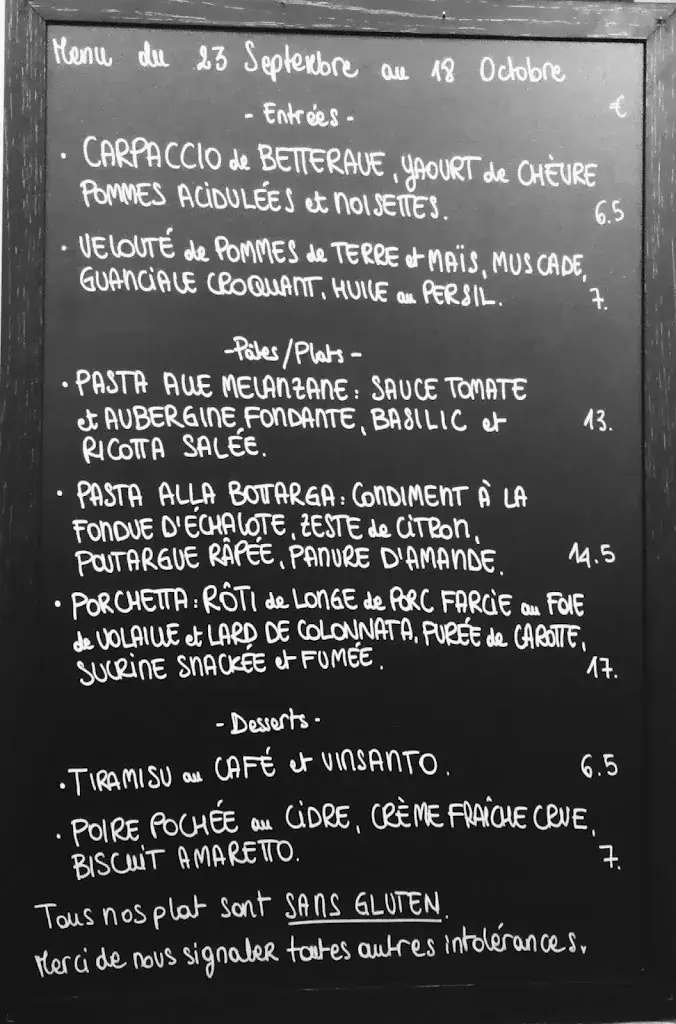 Menu du 23 Septembre au 18 Octobre
- Entrées -
€
· CARPACCIO de BETTERAVE, YAOURT de CHÈVRE
POMMES ACIDULÉES et NOISETTES.
6.5
· VELOUTÉ de POMMES de TERRE et MAÏS, MUSCADE,
GUANCIALE CROQUANT, HUILE au PERSIL.
7.
- Pâtes/Plats -
· PASTA ALLE MELANZANE: SAUCE TOMATE
et AUBERGINE FONDANTE, BASILIC et
13.
RICOTTA SALÉE.
· PASTA ALLA BOTTARGA: CONDIMENT À LA
FONDUE D'ÉCHALOTE, ZESTE de CITRON,
POUTARGUE RÂPÉE, PANURE D'AMANDE.
14.5
· PORCHETTA: RÔTI de LONGE de PORC FARCIE au FOIE
de VOLAILLE et LARD DE COLONNATA, PURÉE de CAROTTE,
SUCRINE SNACKÉE et FUMÉE.
17.
- Desserts -
· TIRAMISU au CAFÉ et VINSANTO.
6.5
· POIRE POCHÉE au CIDRE, CRÈME FRAÎCHE CRUE,
BISCUIT AMARETTO.
7.
Tous nos plat sont SANS GLUTEN.
Merci de nous signaler toutes autres intolérances.